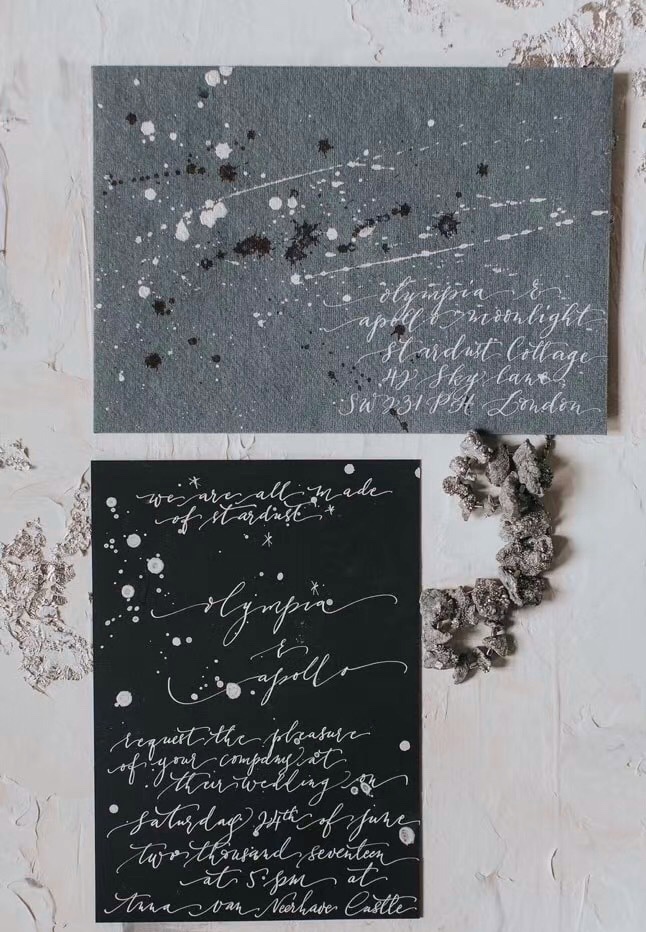 olympia &
apollo moonlight
Stardust Cottage
42 Sky lane
SW231PH London
we are all made
of stardust
olympia
&
apollo
request the pleasure
of your company at
their wedding on
saturday 24th of june
two thousand seventeen
at 5 pm at
van Neerhave Castle